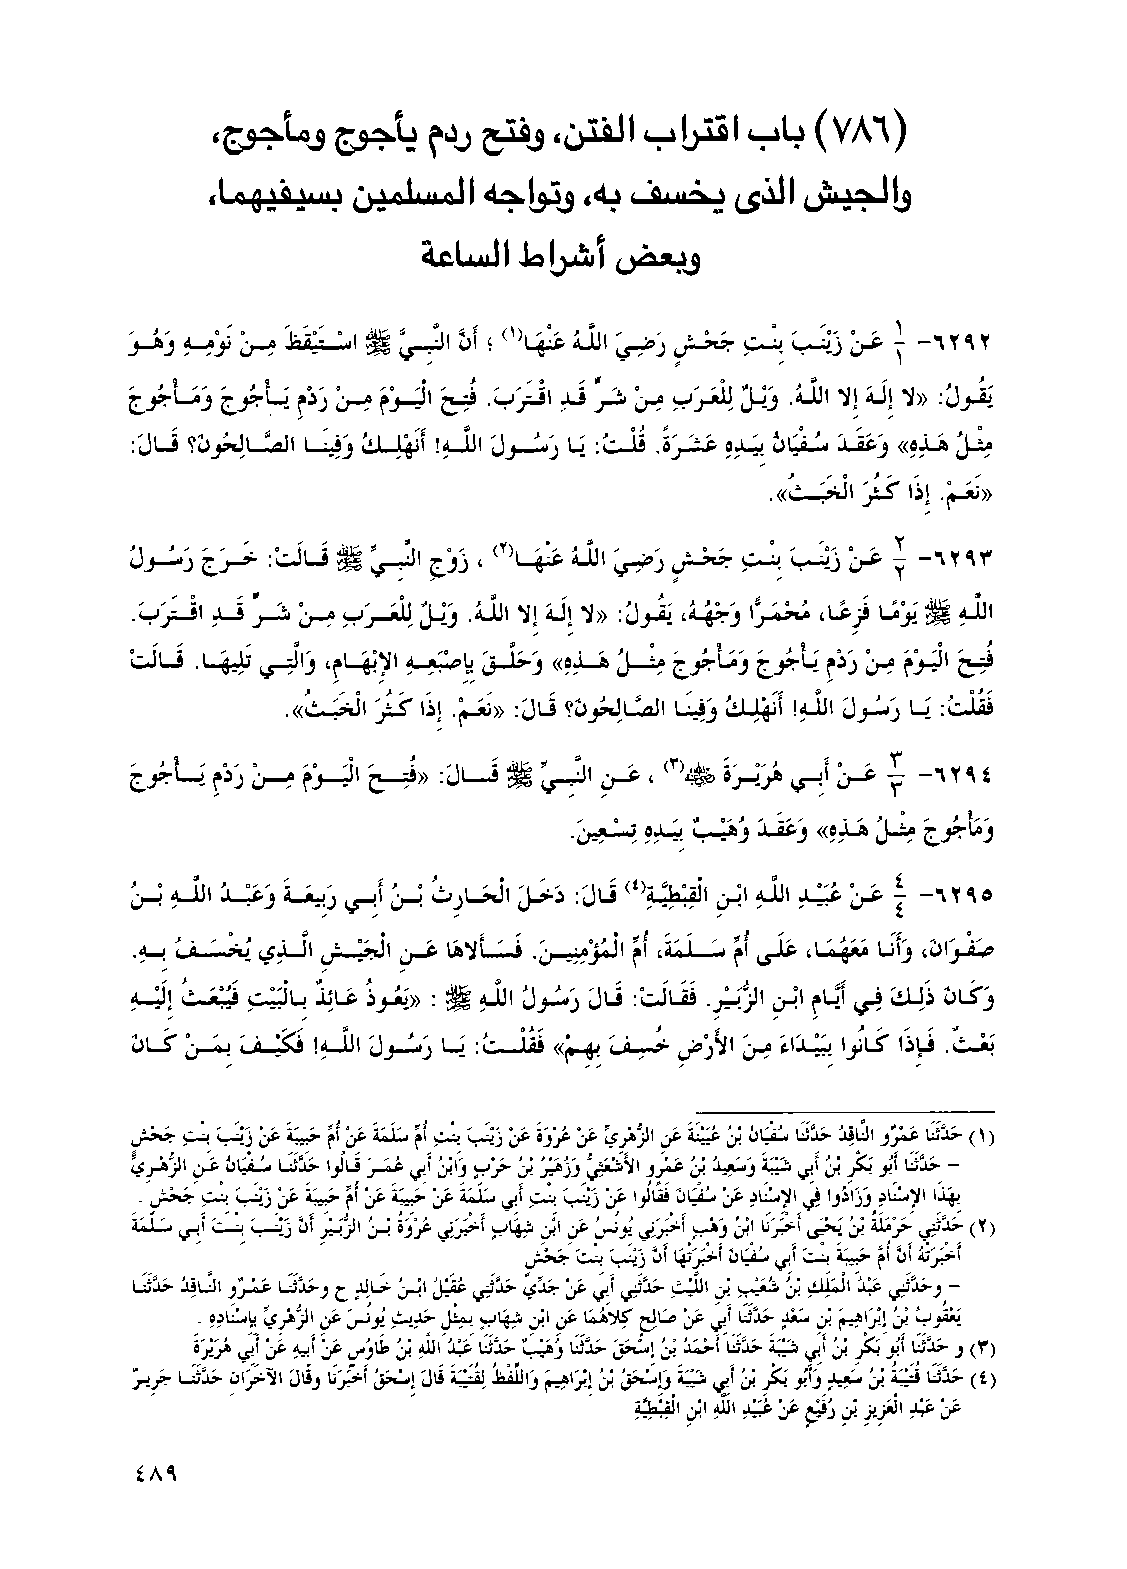 (٧٨٦) باب اقتراب الفتن، وفتح ردم يأجوج ومأجوج،
والجيش الذى يخسف به، وتواجه المسلمين بسيفيهما،
وبعض أشراط الساعة
٦٢٩٢- ١/١ عَنْ زَيْنَبَ بِنْتِ جَحْشٍ رَضِيَ اللَّهُ عَنْهَا(١) ؛ أَنَّ النَّبِيَّ ﷺ اسْتَيْقَظَ مِنْ نَوْمِهِ وَهُوَ
يَقُولُ: «لا إِلَهَ إِلا اللَّهُ. وَيْلٌ لِلْعَرَبِ مِنْ شَرٍّ قَدِ اقْتَرَبَ. فُتِحَ الْيَوْمَ مِنْ رَدْمِ يَأْجُوجَ وَمَأْجُوجَ
مِثْلُ هَذِهِ» وَعَقَدَ سُفْيَانُ بِيَدِهِ عَشَرَةً. قُلْتُ: يَا رَسُولَ اللَّهِ! أَنَهْلِكُ وَفِينَا الصَّالِحُونَ؟ قَالَ:
«نَعَمْ. إِذَا كَثُرَ الْخَبَثُ».
٦٢٩٣- ٢/٢ عَنْ زَيْنَبَ بِنْتِ جَحْشٍ رَضِيَ اللَّهُ عَنْهَا(٢) ، زَوْجِ النَّبِيِّ ﷺ قَالَتْ: خَرَجَ رَسُولُ
اللَّهِ ﷺ يَوْمًا فَزِعًا، مُحْمَرًّا وَجْهُهُ، يَقُولُ: «لا إِلَهَ إِلا اللَّهُ. وَيْلٌ لِلْعَرَبِ مِنْ شَرٍّ قَدِ اقْتَرَبَ.
فُتِحَ الْيَوْمَ مِنْ رَدْمِ يَأْجُوجَ وَمَأْجُوجَ مِثْلُ هَذِهِ» وَحَلَّقَ بِإِصْبَعِهِ الإِبْهَامِ، وَالَّتِي تَلِيهَا. قَالَتْ
فَقُلْتُ: يَا رَسُولَ اللَّهِ! أَنَهْلِكُ وَفِينَا الصَّالِحُونَ؟ قَالَ: «نَعَمْ. إِذَا كَثُرَ الْخَبَثُ».
٦٢٩٤- ٣/٣ عَنْ أَبِي هُرَيْرَةَ ﷺ(٣) ، عَنِ النَّبِيِّ ﷺ قَالَ: «فُتِحَ الْيَوْمَ مِنْ رَدْمِ يَأْجُوجَ
وَمَأْجُوجَ مِثْلُ هَذِهِ» وَعَقَدَ وُهَيْبٌ بِيَدِهِ تِسْعِينَ.
٦٢٩٥- ٤/٤ عَنْ عُبَيْدِ اللَّهِ ابْنِ الْقِبْطِيَّةِ(٤) قَالَ: دَخَلَ الْحَارِثُ بْنُ أَبِي رَبِيعَةَ وَعَبْدُ اللَّهِ بْنُ
صَفْوَانَ، وَأَنَا مَعَهُمَا، عَلَى أُمِّ سَلَمَةَ، أُمِّ الْمُؤْمِنِينَ. فَسَأَلاهَا عَنِ الْجَيْشِ الَّذِي يُخْسَفُ بِهِ.
وَكَانَ ذَلِكَ فِي أَيَّامِ ابْنِ الزُّبَيْرِ. فَقَالَتْ: قَالَ رَسُولُ اللَّهِ ﷺ : «يَعُوذُ عَائِذٌ بِالْبَيْتِ فَيُبْعَثُ إِلَيْهِ
بَعْثٌ. فَإِذَا كَانُوا بِبَيْدَاءَ مِنَ الأَرْضِ خُسِفَ بِهِمْ» فَقُلْتُ: يَا رَسُولَ اللَّهِ! فَكَيْفَ بِمَنْ كَانَ
(١) حَدَّثَنَا عَمْرٌو النَّاقِدُ حَدَّثَنَا سُفْيَانُ بْنُ عُيَيْنَةَ عَنِ الزُّهْرِيِّ عَنْ عُرْوَةَ عَنْ زَيْنَبَ بِنْتِ أُمِّ سَلَمَةَ عَنْ أُمِّ حَبِيبَةَ عَنْ زَيْنَبَ بِنْتِ جَحْشٍ
– حَدَّثَنَا أَبُو بَكْرِ بْنُ أَبِي شَيْبَةَ وَسَعِيدُ بْنُ عَمْرٍو الأَشْعَثِيُّ وَزُهَيْرُ بْنُ حَرْبٍ وَابْنُ أَبِي عُمَرَ قَالُوا حَدَّثَنَا سُفْيَانُ عَنِ الزُّهْرِيِّ
بِهَذَا الإِسْنَادِ وَزَادُوا فِي الإِسْنَادِ عَنْ سُفْيَانَ فَقَالُوا عَنْ زَيْنَبَ بِنْتِ أَبِي سَلَمَةَ عَنْ حَبِيبَةَ عَنْ أُمِّ حَبِيبَةَ عَنْ زَيْنَبَ بِنْتِ جَحْشٍ .
(٢) حَدَّثَنِي حَرْمَلَةُ بْنُ يَحْيَى أَخْبَرَنَا ابْنُ وَهْبٍ أَخْبَرَنِي يُونُسُ عَنِ ابْنِ شِهَابٍ أَخْبَرَنِي عُرْوَةُ بْنُ الزُّبَيْرِ أَنَّ زَيْنَبَ بِنْتَ أَبِي سَلَمَةَ
أَخْبَرَتْهُ أَنَّ أُمَّ حَبِيبَةَ بِنْتَ أَبِي سُفْيَانَ أَخْبَرَتْهَا أَنَّ زَيْنَبَ بِنْتَ جَحْشٍ
– وحَدَّثَنِي عَبْدُ الْمَلِكِ بْنُ شُعَيْبِ بْنِ اللَّيْثِ حَدَّثَنِي أَبِي عَنْ جَدِّي حَدَّثَنِي عُقَيْلُ ابْنُ خَالِدٍ ح وحَدَّثَنَا عَمْرٌو النَّاقِدُ حَدَّثَنَا
يَعْقُوبُ بْنُ إِبْرَاهِيمَ بْنِ سَعْدٍ حَدَّثَنَا أَبِي عَنْ صَالِحٍ كِلاهُمَا عَنِ ابْنِ شِهَابٍ بِمِثْلِ حَدِيثِ يُونُسَ عَنِ الزُّهْرِيِّ بِإِسْنَادِهِ .
(٣) و حَدَّثَنَا أَبُو بَكْرِ بْنُ أَبِي شَيْبَةَ حَدَّثَنَا أَحْمَدُ بْنُ إِسْحَقَ حَدَّثَنَا وُهَيْبٌ حَدَّثَنَا عَبْدُ اللَّهِ بْنُ طَاوُسٍ عَنْ أَبِيهِ عَنْ أَبِي هُرَيْرَةَ
(٤) حَدَّثَنَا قُتَيْبَةُ بْنُ سَعِيدٍ وَأَبُو بَكْرِ بْنُ أَبِي شَيْبَةَ وَإِسْحَقُ بْنُ إِبْرَاهِيمَ وَاللَّفْظُ لِقُتَيْبَةَ قَالَ إِسْحَقُ أَخْبَرَنَا وقَالَ الآخَرَانِ حَدَّثَنَا جَرِيرٌ
عَنْ عَبْدِ الْعَزِيزِ بْنِ رُفَيْعٍ عَنْ عُبَيْدِ اللَّهِ ابْنِ الْقِبْطِيَّةِ
٤٨٩